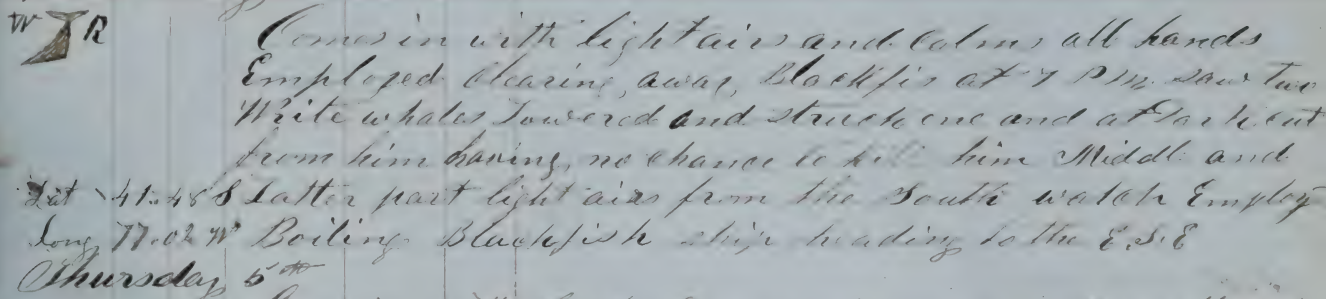 W R Comes in with light airs and Calms all hands
Employed Clearing away Blackfis at 7 P M saw two
Write whales Lowered and struck one and at Dark cut
from him having no chance to kill him Middl and
Lat 41.48 S Latter part light airs from the South watch Employ
Long 77.02 W Boiling Blackfish ship heading to the E.S.E
Thursday 5th